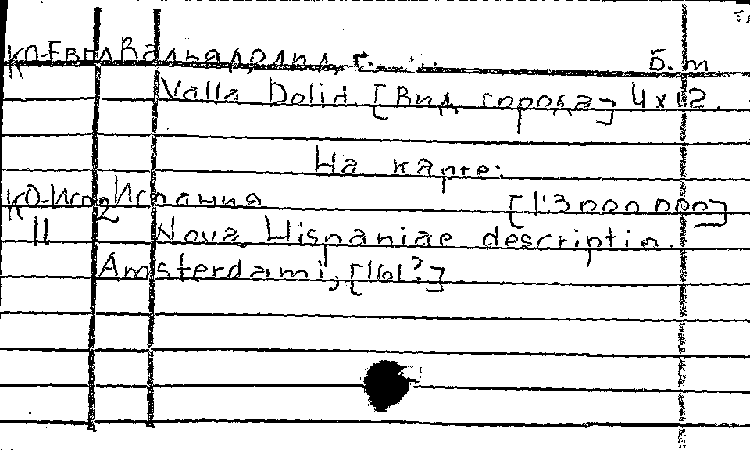 КО-Евп Вальядолид, г. Б.м
Valla Dolid [Вид города] 4x12.
На карте:
КО-Исп Испания [1:3 000 000]
II Nova Hispaniae descriptio.
Amsterdami, [161?]